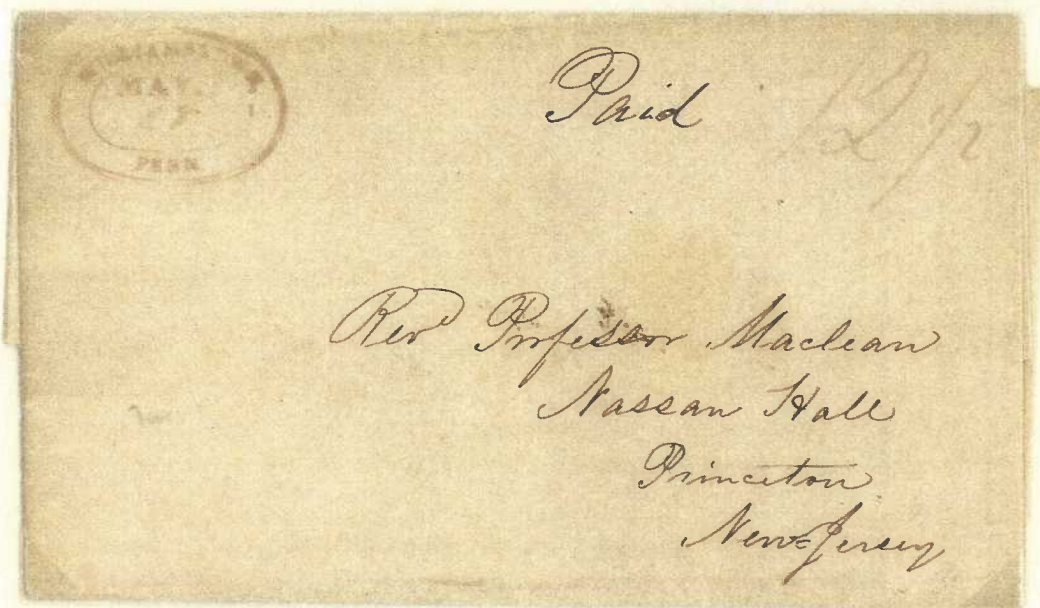 MAY.
PENN
Paid
12 1/2
Revd Professor Maclean
Nassau Hall
Princeton
New=Jersey